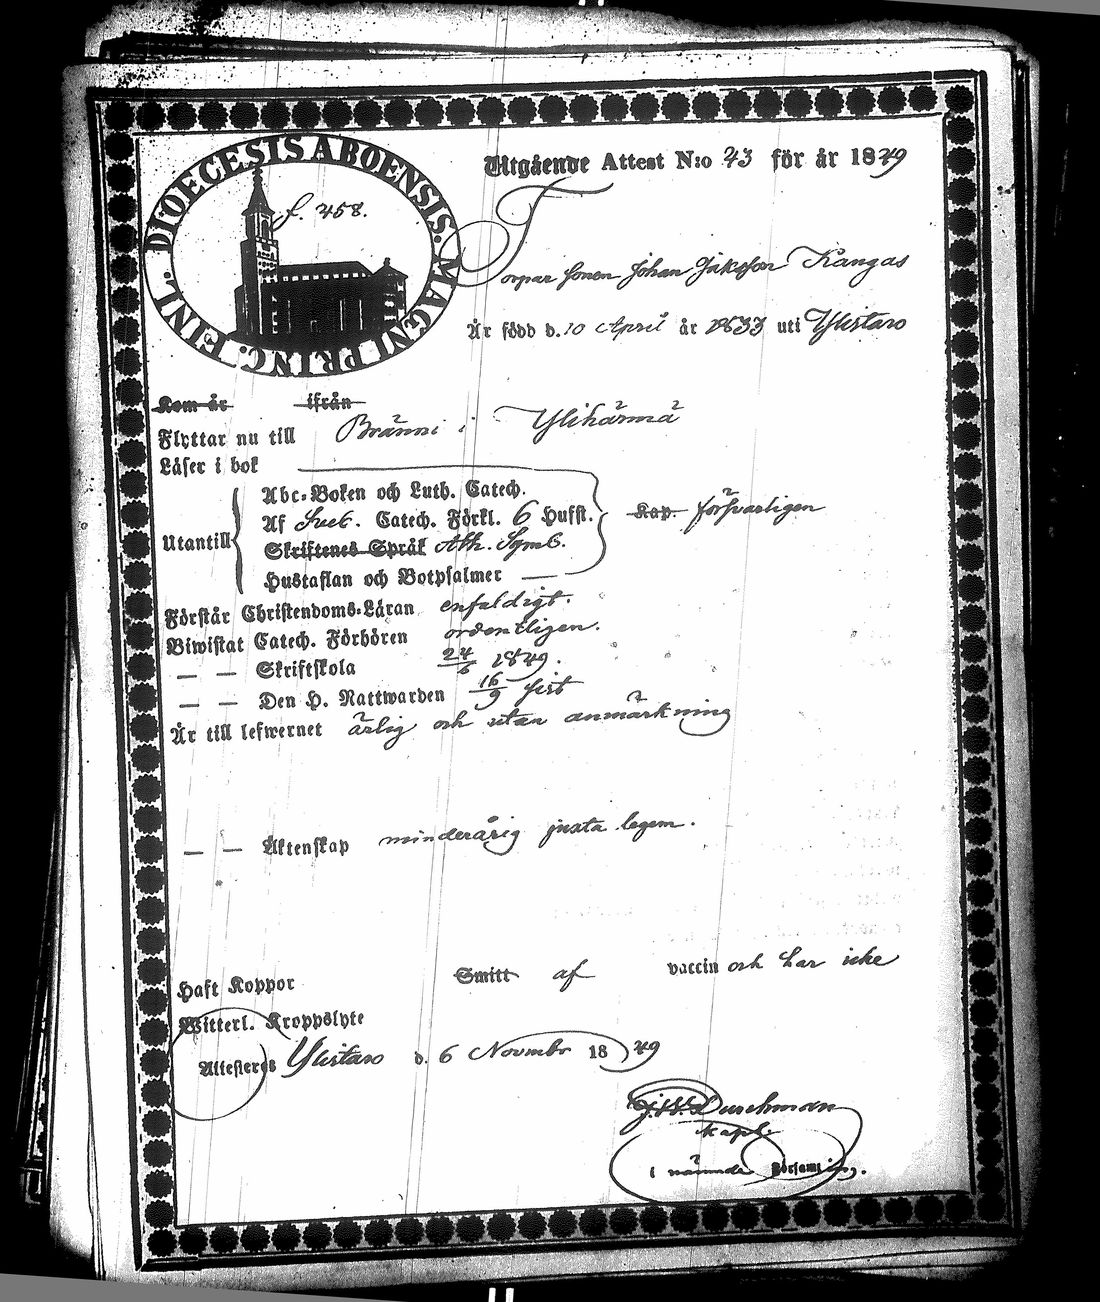 DIOECESIS ABOENSIS. MAGNI PRINC. FINL.
f. 458.
Utgående Attest N:o 43 för år 1849
Torpar sonen Johan Jaksson Kangas
Är född d. 10 April år 1833 uti Ylistaro
Kom år ifrån
Flyttar nu till Bränni i Ylihärmä
Läser i bok
Abc-Boken och Luth. Catech.
Utantill Af Sveb. Catech. Förkl. 6 Hufst. Kap. försvarligen
Skriftenes Språk Ath. Symb.
Hustaflan och Botpsalmer —
Förstår Christendoms-Läran enfaldigt.
Biwistat Catech. Förhören ordentligen.
— — Skriftskola 24/6 1849.
— — Den H. Nattwarden 16/9 sist
Är till lefwernet ärlig och utan anmärkning
— — Äktenskap minderårig juxta legem.
Haft Koppor Smitt af vaccin och har icke
Witterl. Kroppslyte
Attesteras Ylistaro d. 6 Novembr 1849
Durchman
Kapl.
i nämnde Församling.